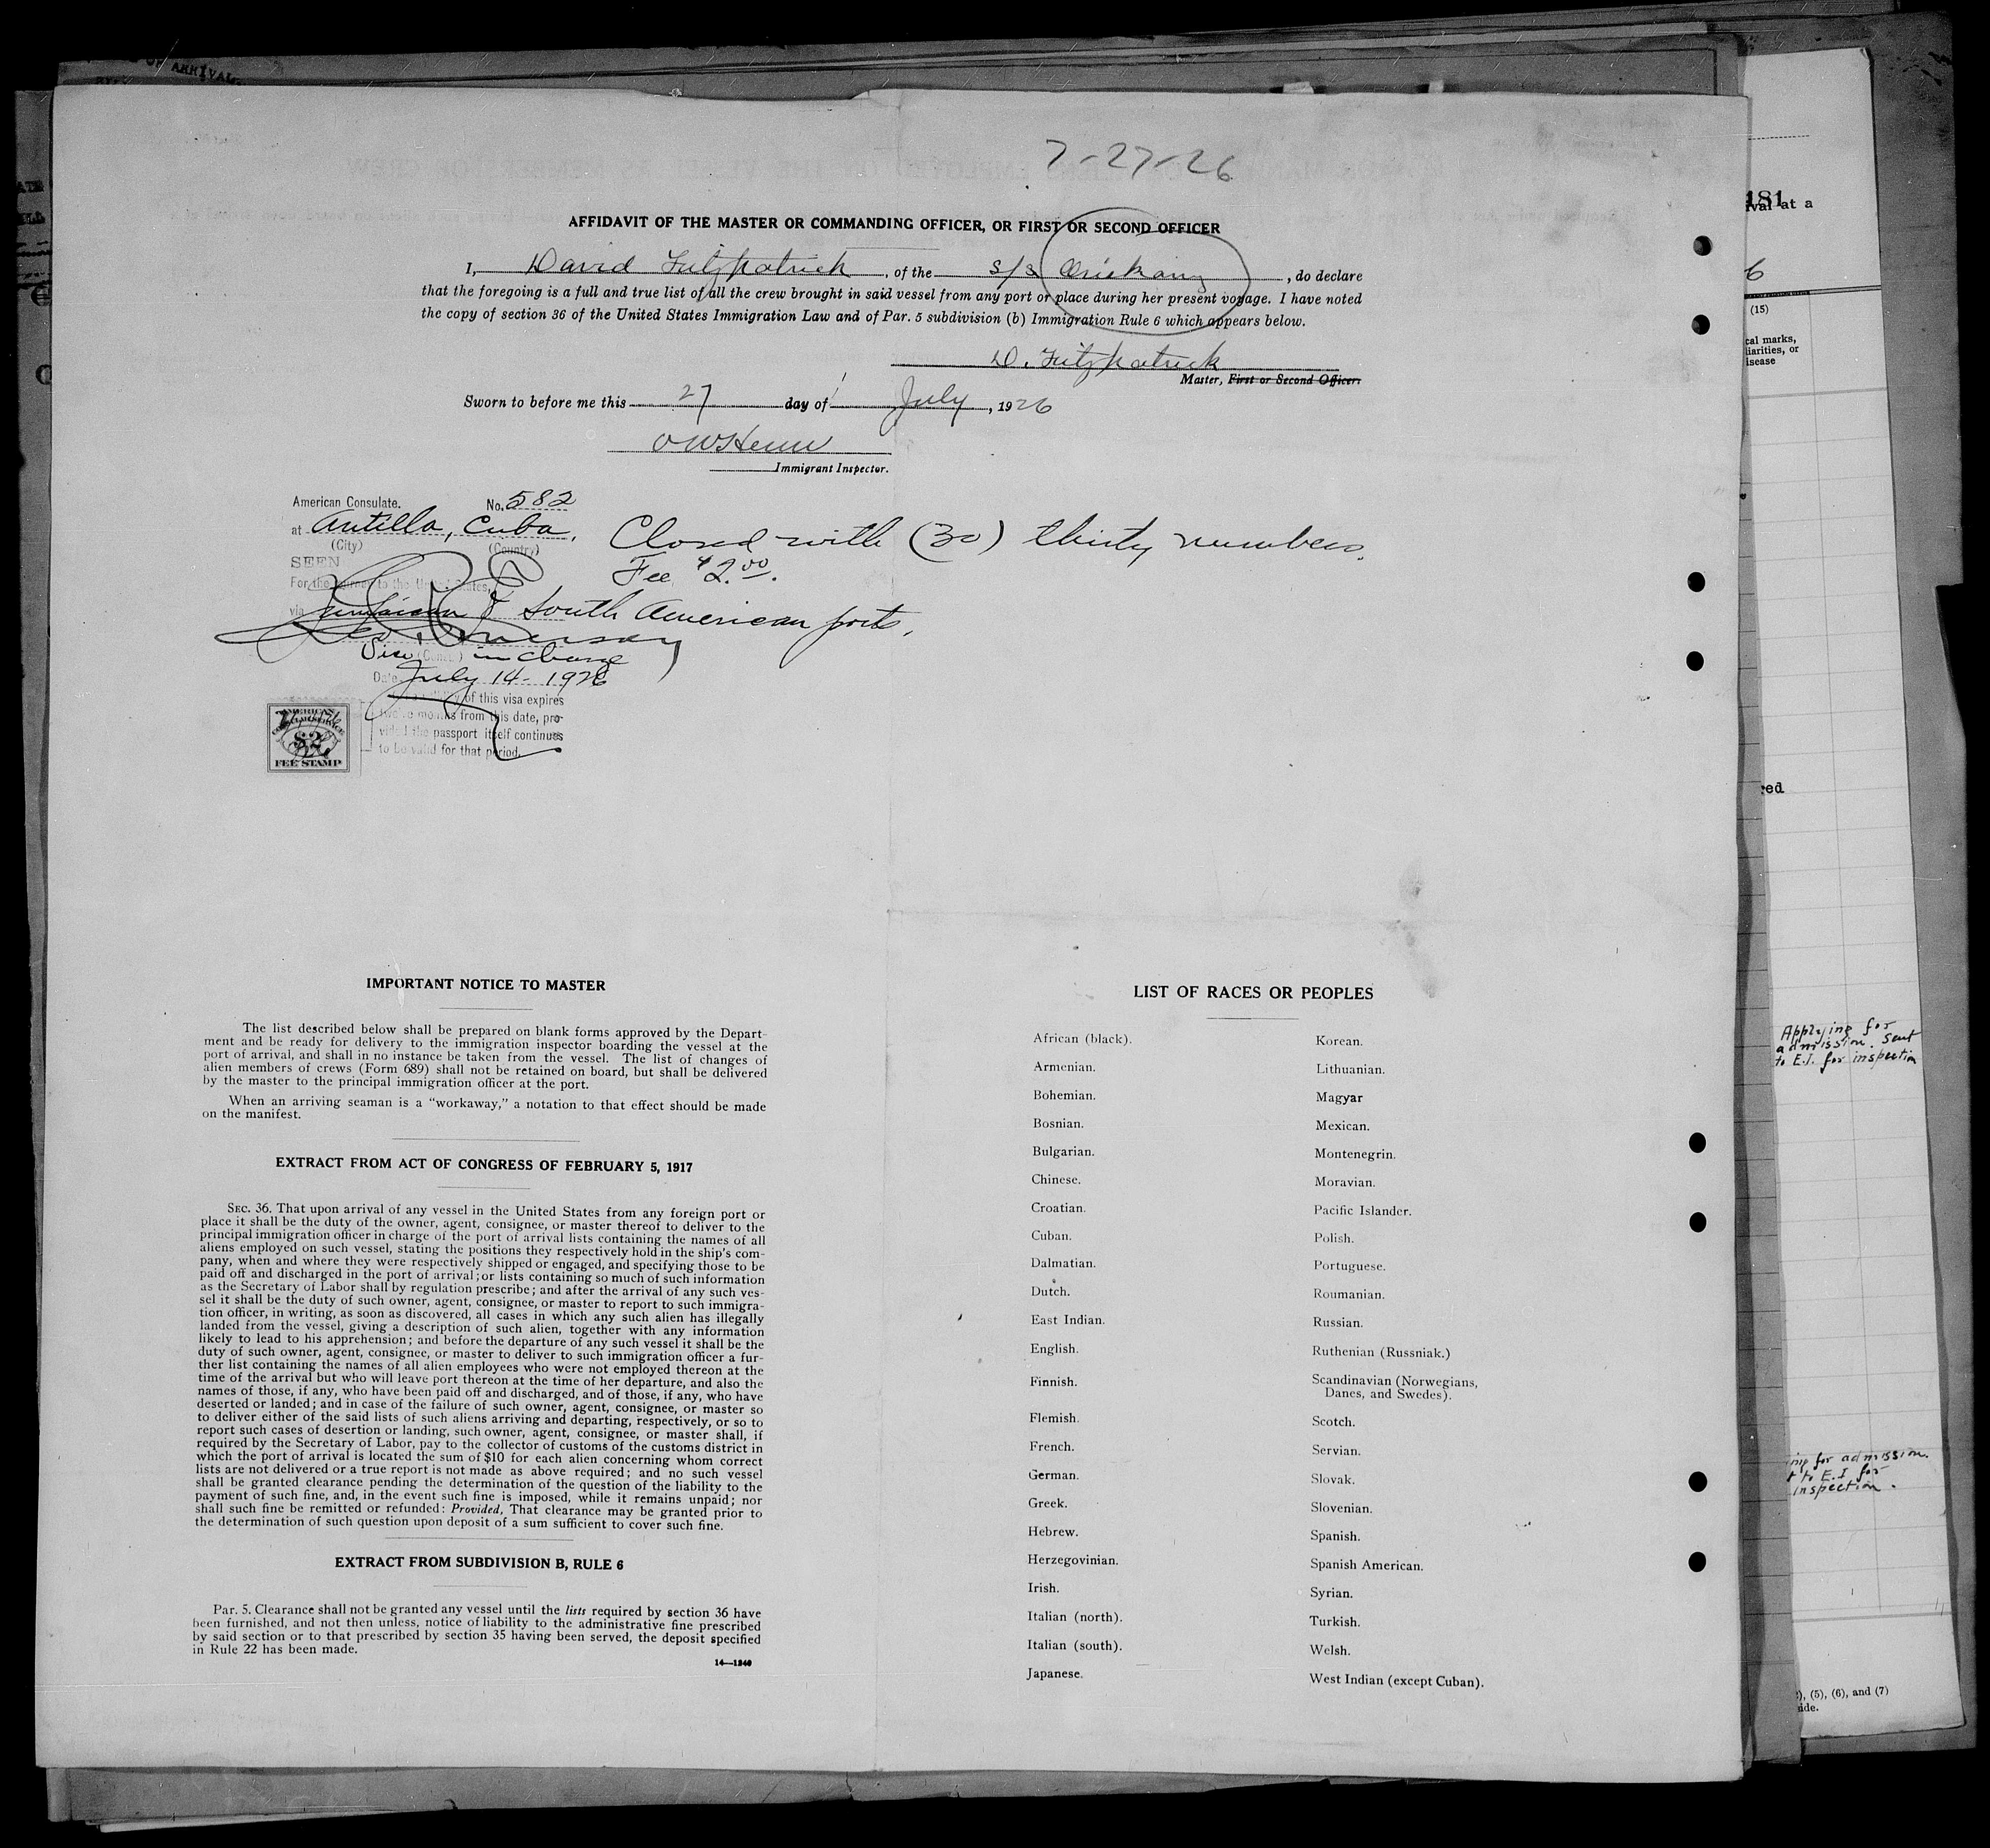 OF ARRIVAL.
7-27-26
AFFIDAVIT OF THE MASTER OR COMMANDING OFFICER, OR FIRST OR SECOND OFFICER
I, David Fitzpatrick, of the s/s, do declare
that the foregoing is a full and true list of all the crew brought in said vessel from any port or place during her present voyage. I have noted
the copy of section 36 of the United States Immigration Law and of Par. 5 subdivision (b) Immigration Rule 6 which appears below.
D. Fitzpatrick
Master, First or Second Officer.
Sworn to before me this 27 day of July, 1926
Immigrant Inspector.
American Consulate. No. 582
at Antilla, Cuba. Closed with (30) thirty numbers.
(City) (Country)
SEEN Fee $2.00.
For the journey to the United States,
via Jamaican & South American ports.
Vice (Consul) in charge
Date July 14-1926
The validity of this visa expires
twelve months from this date, pro-
vided the passport itself continues
to be valid for that period.
AMERICAN
CONSULAR SERVICE
$2
FEE STAMP
IMPORTANT NOTICE TO MASTER
The list described below shall be prepared on blank forms approved by the Depart-
ment and be ready for delivery to the immigration inspector boarding the vessel at the
port of arrival, and shall in no instance be taken from the vessel. The list of changes of
alien members of crews (Form 689) shall not be retained on board, but shall be delivered
by the master to the principal immigration officer at the port.
When an arriving seaman is a "workaway," a notation to that effect should be made
on the manifest.
EXTRACT FROM ACT OF CONGRESS OF FEBRUARY 5, 1917
SEC. 36. That upon arrival of any vessel in the United States from any foreign port or
place it shall be the duty of the owner, agent, consignee, or master thereof to deliver to the
principal immigration officer in charge of the port of arrival lists containing the names of all
aliens employed on such vessel, stating the positions they respectively hold in the ship's com-
pany, when and where they were respectively shipped or engaged, and specifying those to be
paid off and discharged in the port of arrival; or lists containing so much of such information
as the Secretary of Labor shall by regulation prescribe; and after the arrival of any such ves-
sel it shall be the duty of such owner, agent, consignee, or master to report to such immigra-
tion officer, in writing, as soon as discovered, all cases in which any such alien has illegally
landed from the vessel, giving a description of such alien, together with any information
likely to lead to his apprehension; and before the departure of any such vessel it shall be the
duty of such owner, agent, consignee, or master to deliver to such immigration officer a fur-
ther list containing the names of all alien employees who were not employed thereon at the
time of the arrival but who will leave port thereon at the time of her departure, and also the
names of those, if any, who have been paid off and discharged, and of those, if any, who have
deserted or landed; and in case of the failure of such owner, agent, consignee, or master so
to deliver either of the said lists of such aliens arriving and departing, respectively, or so to
report such cases of desertion or landing, such owner, agent, consignee, or master shall, if
required by the Secretary of Labor, pay to the collector of customs of the customs district in
which the port of arrival is located the sum of $10 for each alien concerning whom correct
lists are not delivered or a true report is not made as above required; and no such vessel
shall be granted clearance pending the determination of the question of the liability to the
payment of such fine, and, in the event such fine is imposed, while it remains unpaid; nor
shall such fine be remitted or refunded: Provided, That clearance may be granted prior to
the determination of such question upon deposit of a sum sufficient to cover such fine.
EXTRACT FROM SUBDIVISION B, RULE 6
Par. 5. Clearance shall not be granted any vessel until the lists required by section 36 have
been furnished, and not then unless, notice of liability to the administrative fine prescribed
by said section or to that prescribed by section 35 having been served, the deposit specified
in Rule 22 has been made.
14—1240
LIST OF RACES OR PEOPLES
African (black).
Armenian.
Bohemian.
Bosnian.
Bulgarian.
Chinese.
Croatian.
Cuban.
Dalmatian.
Dutch.
East Indian.
English.
Finnish.
Flemish.
French.
German.
Greek.
Hebrew.
Herzegovinian.
Irish.
Italian (north).
Italian (south).
Japanese.
Korean.
Lithuanian.
Magyar
Mexican.
Montenegrin.
Moravian.
Pacific Islander.
Polish.
Portuguese.
Roumanian.
Russian.
Ruthenian (Russniak.)
Scandinavian (Norwegians,
Danes, and Swedes).
Scotch.
Servian.
Slovak.
Slovenian.
Spanish.
Spanish American.
Syrian.
Turkish.
Welsh.
West Indian (except Cuban).
181
ival at a
6
(15)
cal marks,
liarities, or
isease
red
Applying for
admission. Sent
to E.I. for inspection
ing for admission.
t to E.I for
inspection.
), (5), (6), and (7)
side.